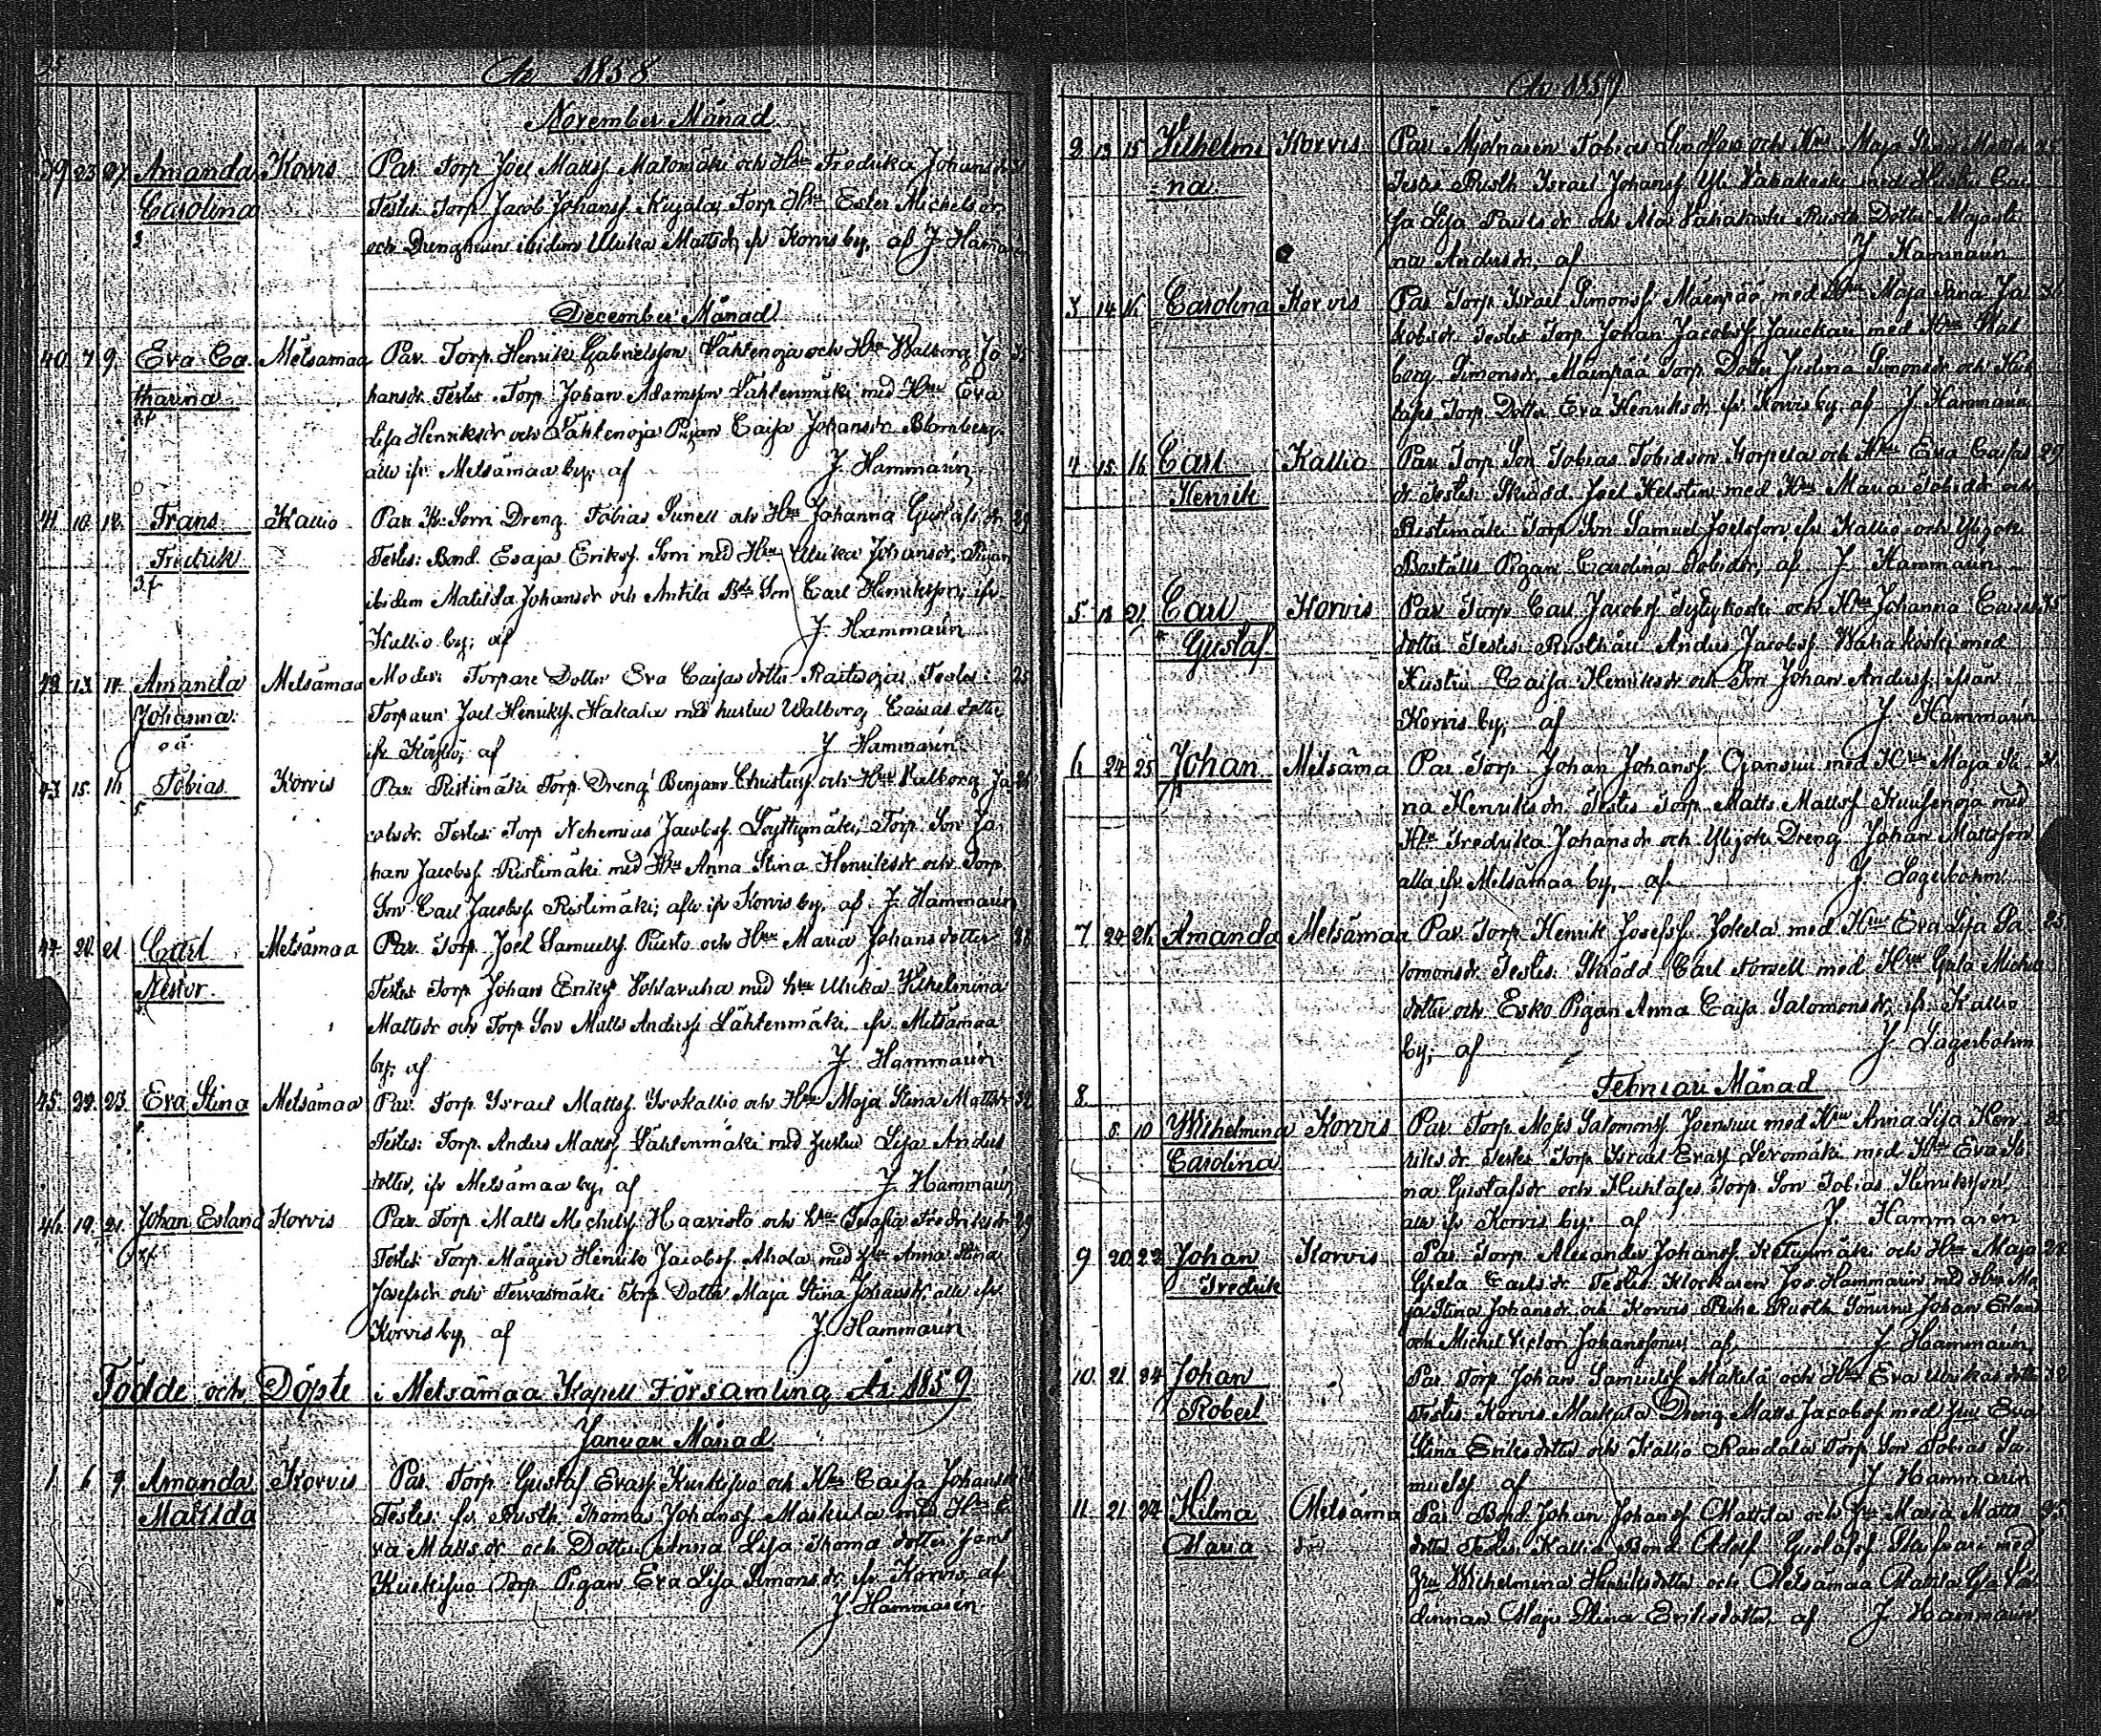 År 1858
November Månad
39 23 27 Amanda Korvis Par. Torp Joel Mattss. Matomäki och Hru Fredrika Johansdr 31
Carolina Testes Torp Jacob Johanss. Kujala, Torp Hru Ester Michelsdr
och Drenghrun ibidem Ulrika Mattsdr, fr Korvis by, af J. Hammarin
December Månad
40 7 9 Eva Ca Metsämaa Par. Torp. Henrik Gabrielsson Lähtenoja och Hru Walborg Jo 35
tharina hansdr. Testes Torp Johan Adamsson Lähtenmäki med Hru Eva
Lisa Henriksdr och Lähtenoja Pigan Caisa Johansdr Blomberg
alle ifr Metsämaa by, af J. Hammarin
41 10 12 Frans Kallio Par. Sorri Dreng Tobias Sunell och Hru Johanna Gustafsdr 29
Fredrik Testes: Bond. Esaja Erikss. Sorri med Hru Ulrika Johansdr, Pigan
ibidem Matilda Johansdr och Antila Bde Son Carl Henriksson, ifr
Kallio by, af J. Hammarin
42 13 14 Amanda Metsämaa Moder: Torpare Dotter Eva Caisasdotter Raitioja, Testes: 25
Johanna Torparen Joel Henrikss. Hakala med hustru Walborg Caisas dotter
oä ifr Körslö, af J. Hammarin
43 15 16 Tobias Korvis Par. Ristimäki Torp. Dreng Benjam Christers och Hru Valborg Ja 26
cobsdr. Testes: Torp Nehemias Jacobss. Löyttymäki, Torp. Son Jo
han Jacobss. Ristimäki med Hru Anna Stina Henriksdr och Torp
Son Carl Jacobss. Ristimäki; alle ifr Korvis by, af J. Hammarin
44 20 21 Carl Metsämaa Par. Torp. Joel Samuelss. Puisto och Hru Maria Johans dotter 28
Nestor Testes Torp Johan Erikss. Wohlavuha med hru Ulrika Wilhelmina
Mattsdr och Torp Son Matts Anderss. Lähtenmäki, ifr Metsämaa
by, af J. Hammarin
45 22 23 Eva Stina Metsämaa Par. Torp. Israel Mattss. Isokallio och Hru Maja Stina Mattsdr 32
Testes: Torp. Anders Mattss. Lähtenmäki med hustru Lisa Anders
dotter, ifr Metsämaa by, af J. Hammarin
46 19 21 Johan Erland Korvis Par. Torp. Matts Michelss. Haavisto och hru Serafia Fredriksdr 29
Testes Torp Mågen Henrik Jacobss. Ahola med hru Anna Stina
Josefsdr och Tervasmäki Torp. Dotter Maja Stina Johansdr. alle ifr
Korvis by, af J. Hammarin
Födde och Döpte i Metsämaa Kapell Församling År 1859
Januari Månad
1 6 9 Amanda Korvis Par. Torp. Gustaf Erass. Kuskisuo och Hru Caisa Johansdr
Matilda Testes: fr. Rusth. Thomas Johanss. Markula med Hru E
va Mattsdr och Dotter Anna Lisa Thoma dotter, samt
Kuskisuo Torp. Pigan Eva Lisa Simonsdr, fr Korvis, af
J. Hammarin
År 1859
2 13 15 Wilhelmi Korvis Par Mjölnaren Tobias Lindfors och Hru Maja Stina Matts 25
na Testes Rusth Israel Johanss. Yli Vahakoski med Hustru Cai
sa Lisa Paulsdr och Ala Vahakoski Rusth Dotter Majasti
na Andersdr, af J Hammarin
3 14 16 Carolina Korvis Par. Torp. Israel Simonss. Mäenpää med Hru Maja Stina Ja 36
kobsdr. Testes Torp Johan Jacobss. med Hru Wal
borg Simonsdr, Mäenpää Torp. Dotter Justina Simonsdr och
Torp. Dotter Eva Henriksdr, ifr Korvis by, af J. Hammarin
4 15 16 Carl Kallio Par Torp Son Tobias Tobiasson Korpela och Hru Eva Caisas 29
Henrik dr Testes: Skrädd. Joel Helstén med Hru Maria Tobisdr och
Ristimäki Torp Son Samuel Joelsson ifr Kallio och Ylijoki
Boställs Pigan Carolina Tobisdr, af J Hammarin
5 18 21 Carl Korvis Par Torp Carl Jacobss. Syllykoski och Hru Johanna Carls 35
Gustaf dotter Testes: Rusthåll Anders Jacobss. Wahakoski med
Hustru Caisa Henriksdr och Son Johan Anderss. ifrån
Korvis by, af J. Hammarin
6 24 25 Johan Metsäma Par Torp. Johan Johanss. Ojansuu med Hru Maja Sti 31
na Henriksdr. Testes Torp. Matts Mattss. Kuusenoja med
Hru Fredrika Johansdr och Ylijoki Dreng Johan Mattsson
alla ifr Metsämaa by, af J. Lagerbohm
7 24 26 Amanda Metsämaa Par. Torp Henrik Josefss. Jokela med Hru Eva Lisa Sa 25
lomonsdr. Testes: Skrädd Carl Forsell med Hru Greta Michels
dotter och Esko Pigan Anna Caisa Salomonsdr, ifr Kallio
by, af J. Lagerbohm
Februari Månad
8 8 10 Wilhelmina Korvis Par. Torp. Moses Salomonss. Joensuu med Hru Anna Lisa Hen 25
Carolina riksdr Testes Torp Israel Erass. Levomäki med Hru Eva Sti
na Gustafsdr och Torp. Son Tobias Henriksson,
alle ifr Korvis by, af J. Hammarén
9 20 22 Johan Korvis Par. Torp. Alexander Johanss. Ketunmäki och Hru Maja 28
Fredrik Greta Carlsdr. Testes: Klockaren Jos. Hammarin med Hru Ma
ja Stina Johansdr och Korvis Rusth Sönerne Johan Erland
och Michel Victor Johanssoner, af J Hammarin
10 21 24 Johan Par. Torp. Johan Samuelss. Mäkelä och Hru Eva Ulrikas dotter 32
Robert Testes: Korvis Markula Dreng Matts Jacobss. med hru Eva
Stina Eriksdotter och Kallio Randala Torp Son Tobias Sa
muelss. af J Hammarin
11 21 24 Hilma Metsäma Par Bond. Johan Johanss. Mattila och hru Maria Matts 35
Maria dotter Testes: Kallio Bond. Adolf Gustafss. med
hru Wilhelmina Henriksdotter och Metsämaa Mattila
Maja Stina Eriksdotter, af J Hammarin